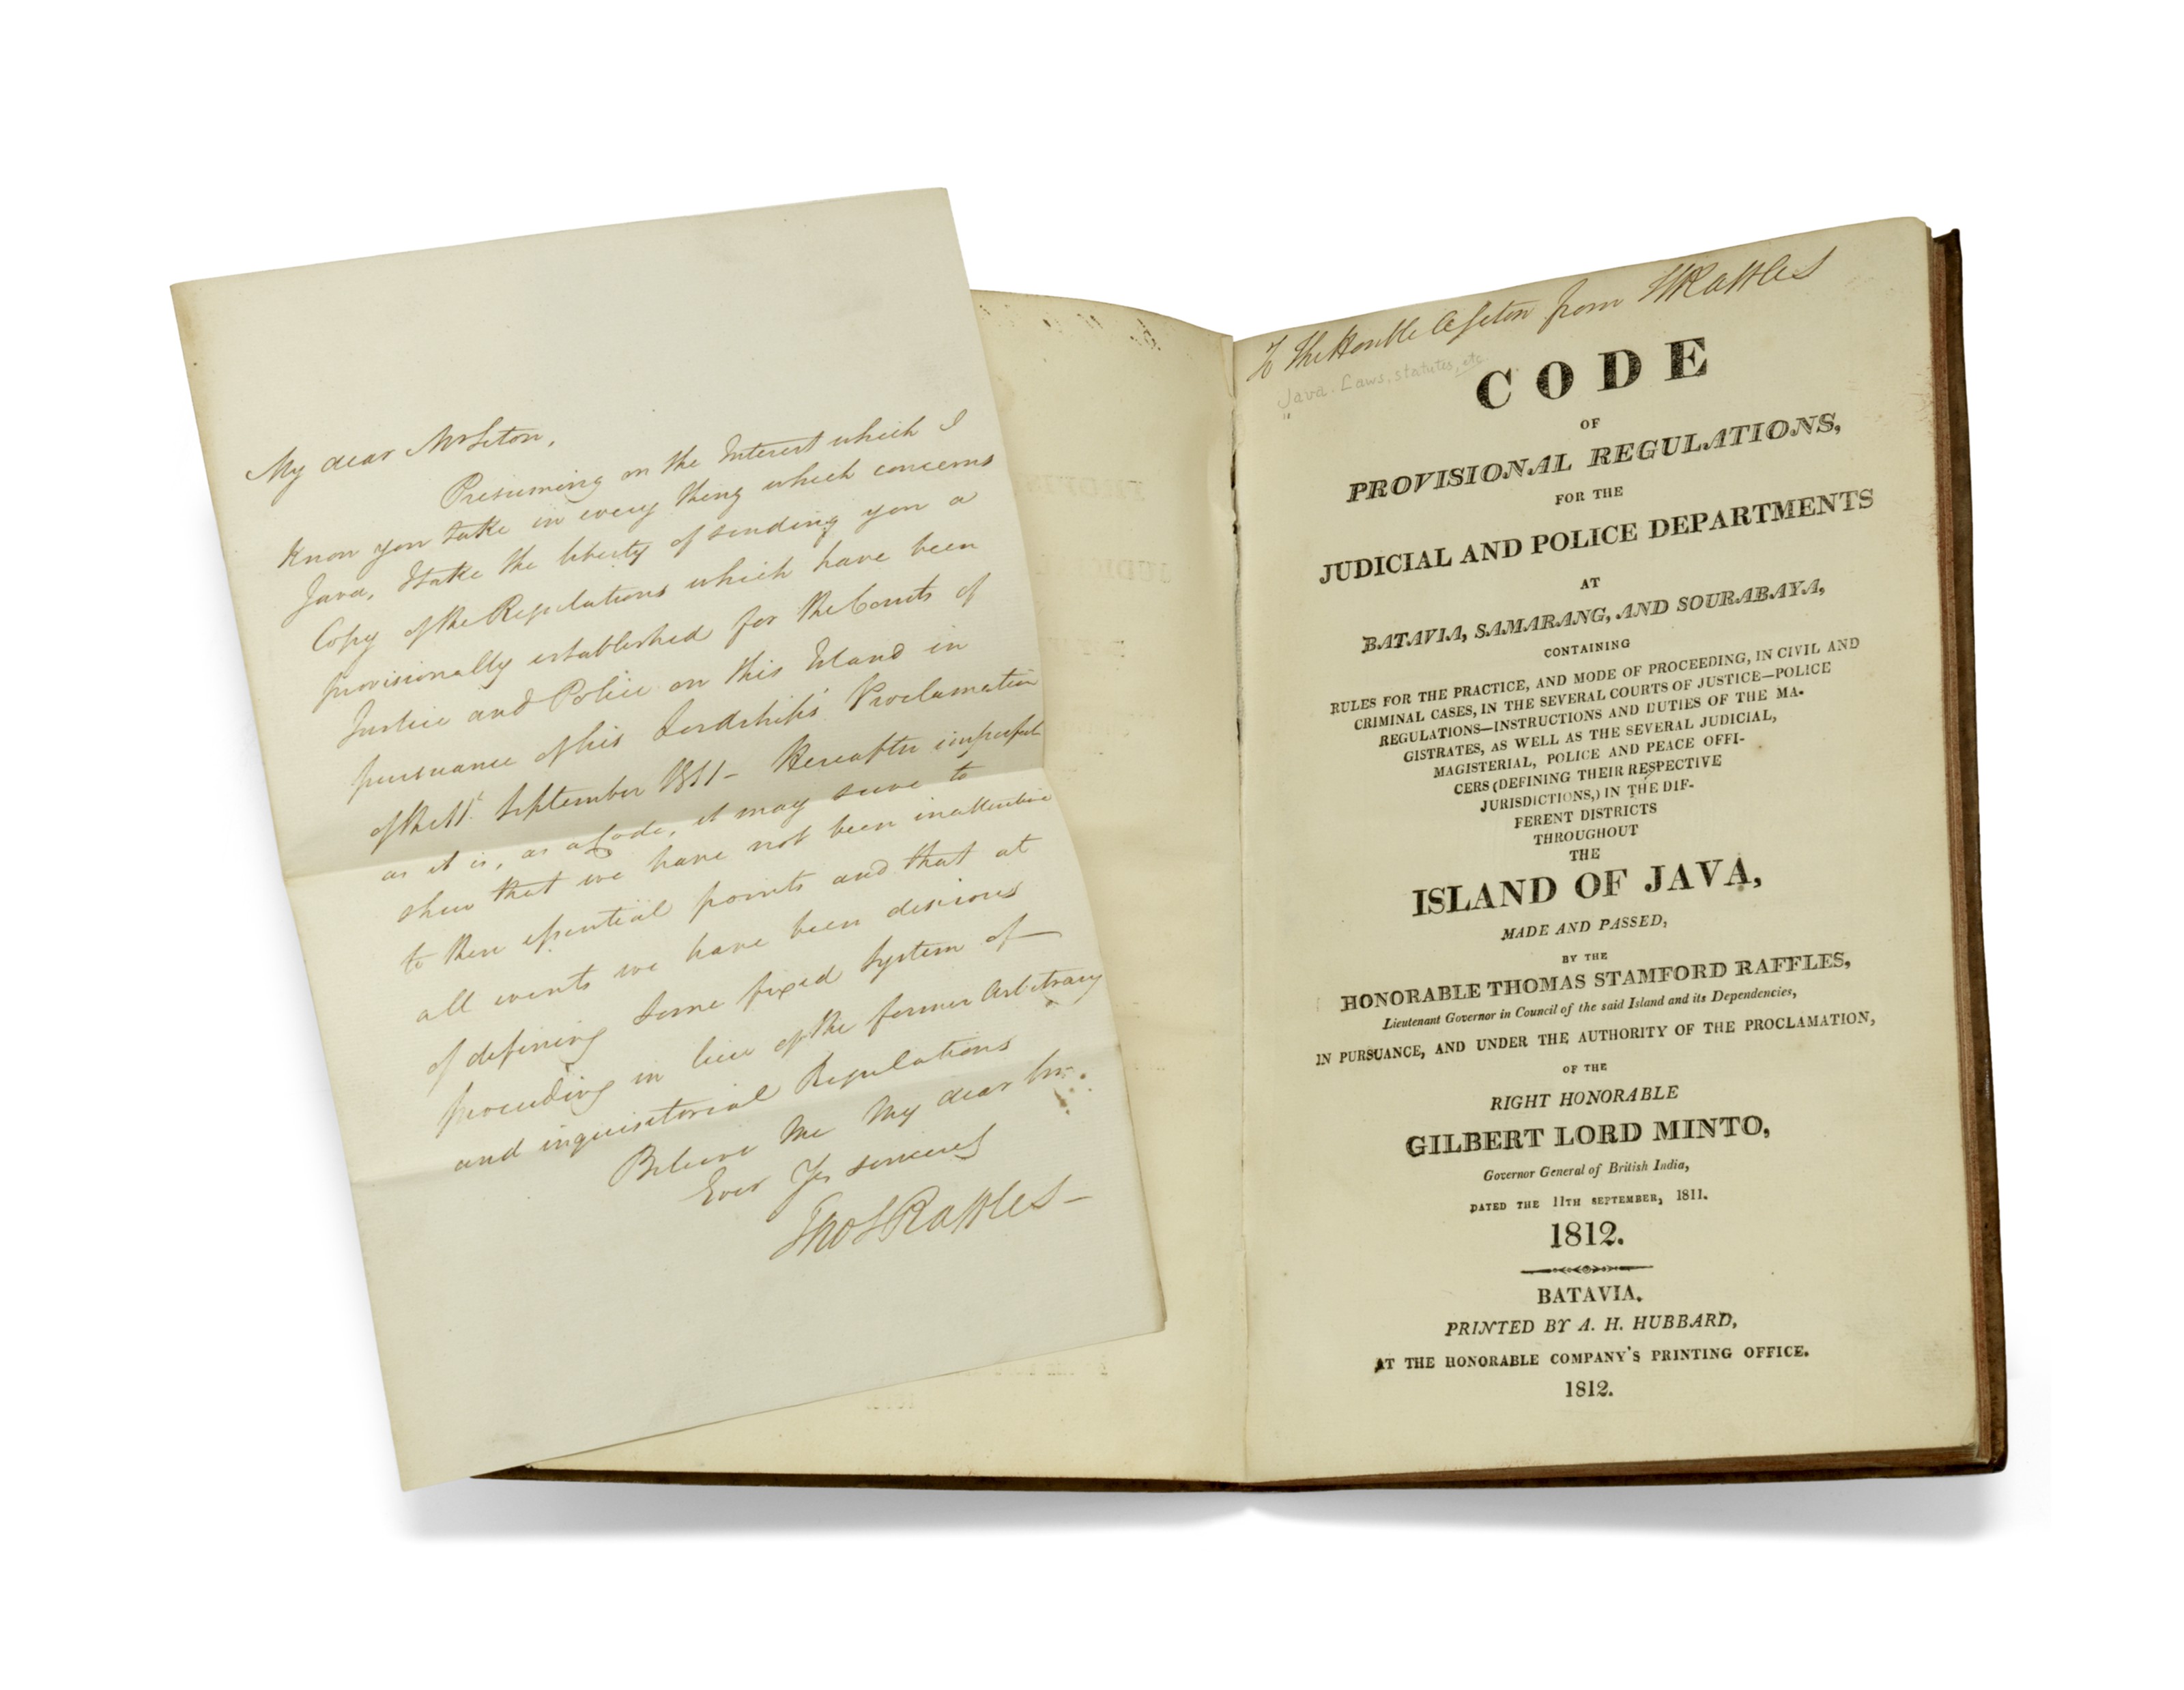 My dear Mr Seton,
Presuming on the Interest which I
know you take in every thing which concerns
Java, I take the liberty of sending you a
Copy of the Regulations which have been
provisionally established for the Courts of
Justice and Police on this Island in
pursuance of his Lordship's Proclamation
of the 11th September 1811 - Hereafter imperfect
as it is, as a Code, it may serve to
shew that we have not been inattentive
to these essential points and that at
all events we have been desirous
of defining some fixed system of
proceeding in lieu of the former Arbitrary
and inquisitorial Regulations
Believe me My dear Sir
Ever Yrs sincerely
Thos Raffles -
To The Honble A Seton from TSRaffles
Java. Laws, statutes, etc.
CODE
OF
PROVISIONAL REGULATIONS,
FOR THE
JUDICIAL AND POLICE DEPARTMENTS
AT
BATAVIA, SAMARANG, AND SOURABAYA,
CONTAINING
RULES FOR THE PRACTICE, AND MODE OF PROCEEDING, IN CIVIL AND
CRIMINAL CASES, IN THE SEVERAL COURTS OF JUSTICE—POLICE
REGULATIONS—INSTRUCTIONS AND DUTIES OF THE MA-
GISTRATES, AS WELL AS THE SEVERAL JUDICIAL,
MAGISTERIAL, POLICE AND PEACE OFFI-
CERS (DEFINING THEIR RESPECTIVE
JURISDICTIONS,) IN THE DIF-
FERENT DISTRICTS
THROUGHOUT
THE
ISLAND OF JAVA,
MADE AND PASSED,
BY THE
HONORABLE THOMAS STAMFORD RAFFLES,
Lieutenant Governor in Council of the said Island and its Dependencies,
IN PURSUANCE, AND UNDER THE AUTHORITY OF THE PROCLAMATION,
OF THE
RIGHT HONORABLE
GILBERT LORD MINTO,
Governor General of British India,
DATED THE 11TH SEPTEMBER, 1811.
1812.
BATAVIA.
PRINTED BY A. H. HUBBARD,
AT THE HONORABLE COMPANY'S PRINTING OFFICE.
1812.